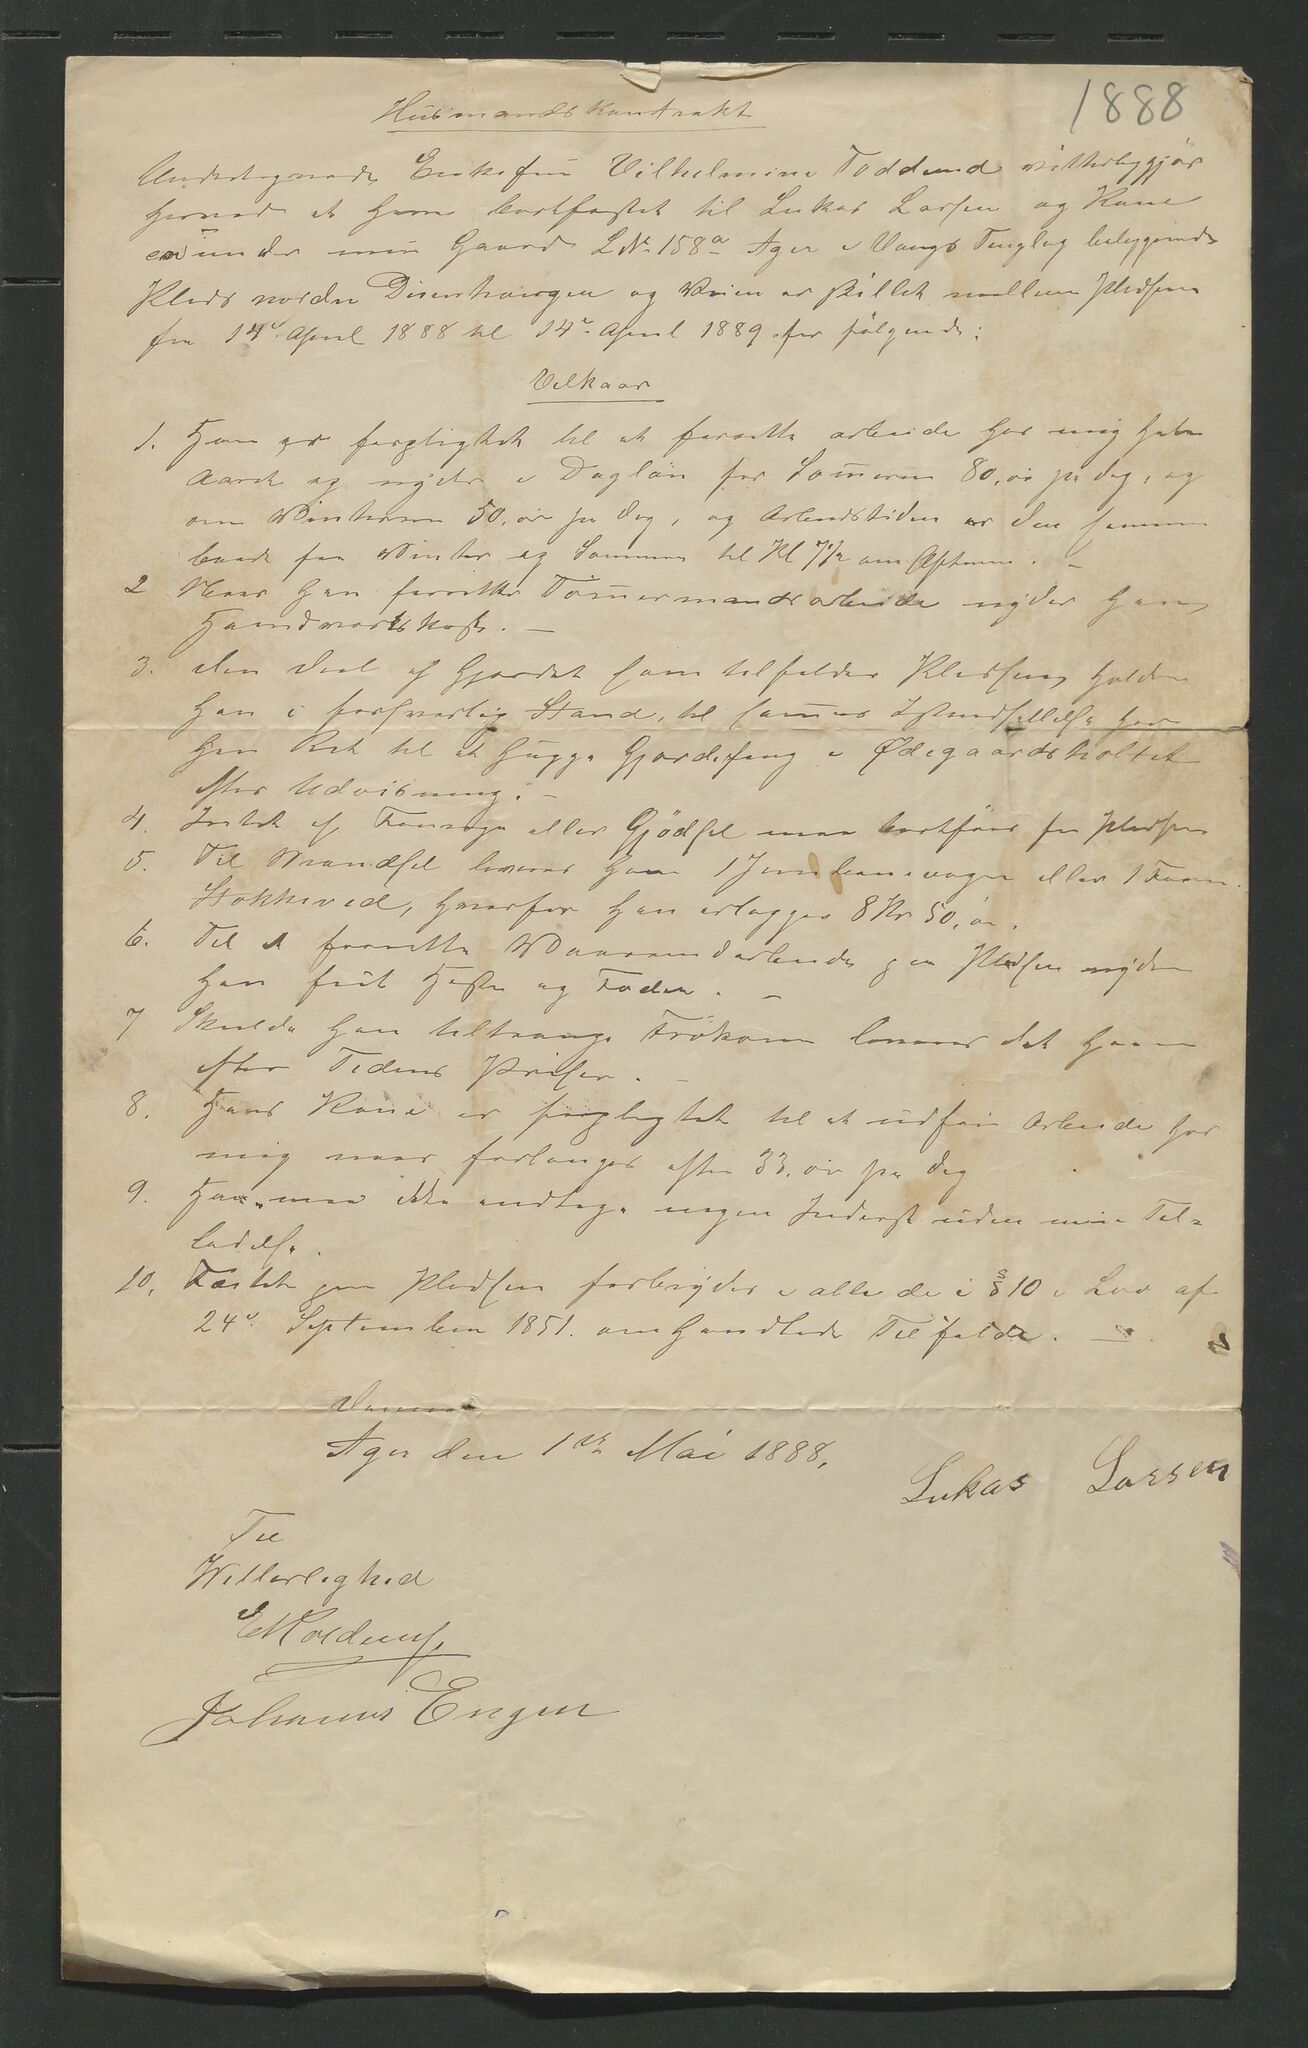 1888
Husmandskontrakt
Undertegnede Enkefru Vilhelmine Toddrud vitterliggjör
herved at have bortfæstet til Lukas Larsen og Kone
under min Gaard L.Nr. 158a Ager i Vangs Tinglag beliggende
Plads nordre Disenhaugen og Veien er skillet mellem Pladsene
fra 14de April 1888 til 14de April 1889 for følgende:
Velkaar
1. Han er forpligtet til at forrette arbeide hos mig hele
Aaret og nyder i Daglön for Sommeren 80 öre pr dag, og
om Vinteren 50 öre pr dag, og Arbeidstiden er den samme
baade for Vinter og Sommer til Kl 7½ om Aftenen. –
2 Naar han forretter Tömmermandsarbeide nyder han
Haandverkskost. –
3. den Deel af Gjerdet som tilfalder Pladsen holder
han i forsvarlig Stand, til sammes Istandsættelse har
han Ret til at hugge Gjerdefang i Ødegaardsholtet
efter Udvisning. –
4. Intet af Foeravl eller Gjödsel maa bortføres fra Pladsen
5. Til Brændsel leveres ham 1 Jernbanevogn eller 1 Favn
Stokkeved, hvorfor han erlægger 8 Kr 50 öre.
6. Til at forrette Vaaraandarbeide paa Pladsen nyder
han frit Heste og Foder. –
7 Skulde han tiltrænge Frökorn leveres det ham
efter Tidens Priser. –
8. Hans Kone er forpligtet til at udföre Arbeide hos
mig naar forlanges efter 33 öre pr dag
9. Han maa ikke andtage nogen Inderst uden min Til=
ladelse.
10. Fæstet paa Pladsen forbryder i alle de i § 10 i Lov af
24de September 1851 omhandlede Tilfælde. –
Ager den 1ste Mai 1888.
Lukas Larsen
Til
Witterlighed
Johannes Engen